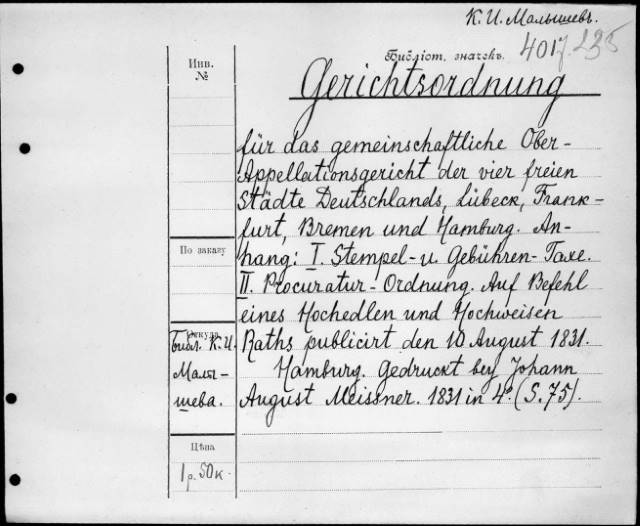 К. И. Малышевъ.
Библіот. значекъ. 4017.235
Инв.
№
Gerichtsordnung
für das gemeinschaftliche Ober-
Appellationsgericht der vier freien
Städte Deutschlands, Lübeck, Frank-
furt, Bremen und Hamburg. An-
По заказу
hang: I. Stempel- u. Gebühren-Taxe.
II. Procuratur-Ordnung. Auf Befehl
eines Hochedlen und Hochweisen
Откуда
Библ. К. И.
Малы-
шева.
Raths publicirt den 10 August 1831.
Hamburg. Gedruckt bey Johann
August Meissner. 1831 in 4º. (S. 75).
Цѣна
1 р. 50 к.